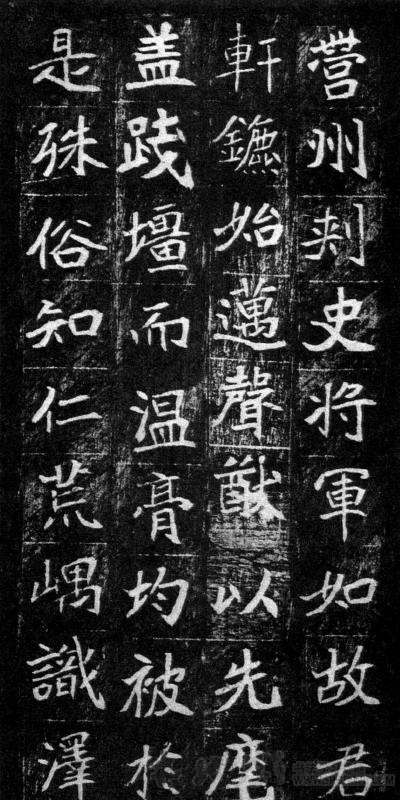 營州刺史將軍如故君
軒鑣始邁聲猷以先麾
盖踐壃而温膏均被於
是殊俗知仁荒嵎識澤